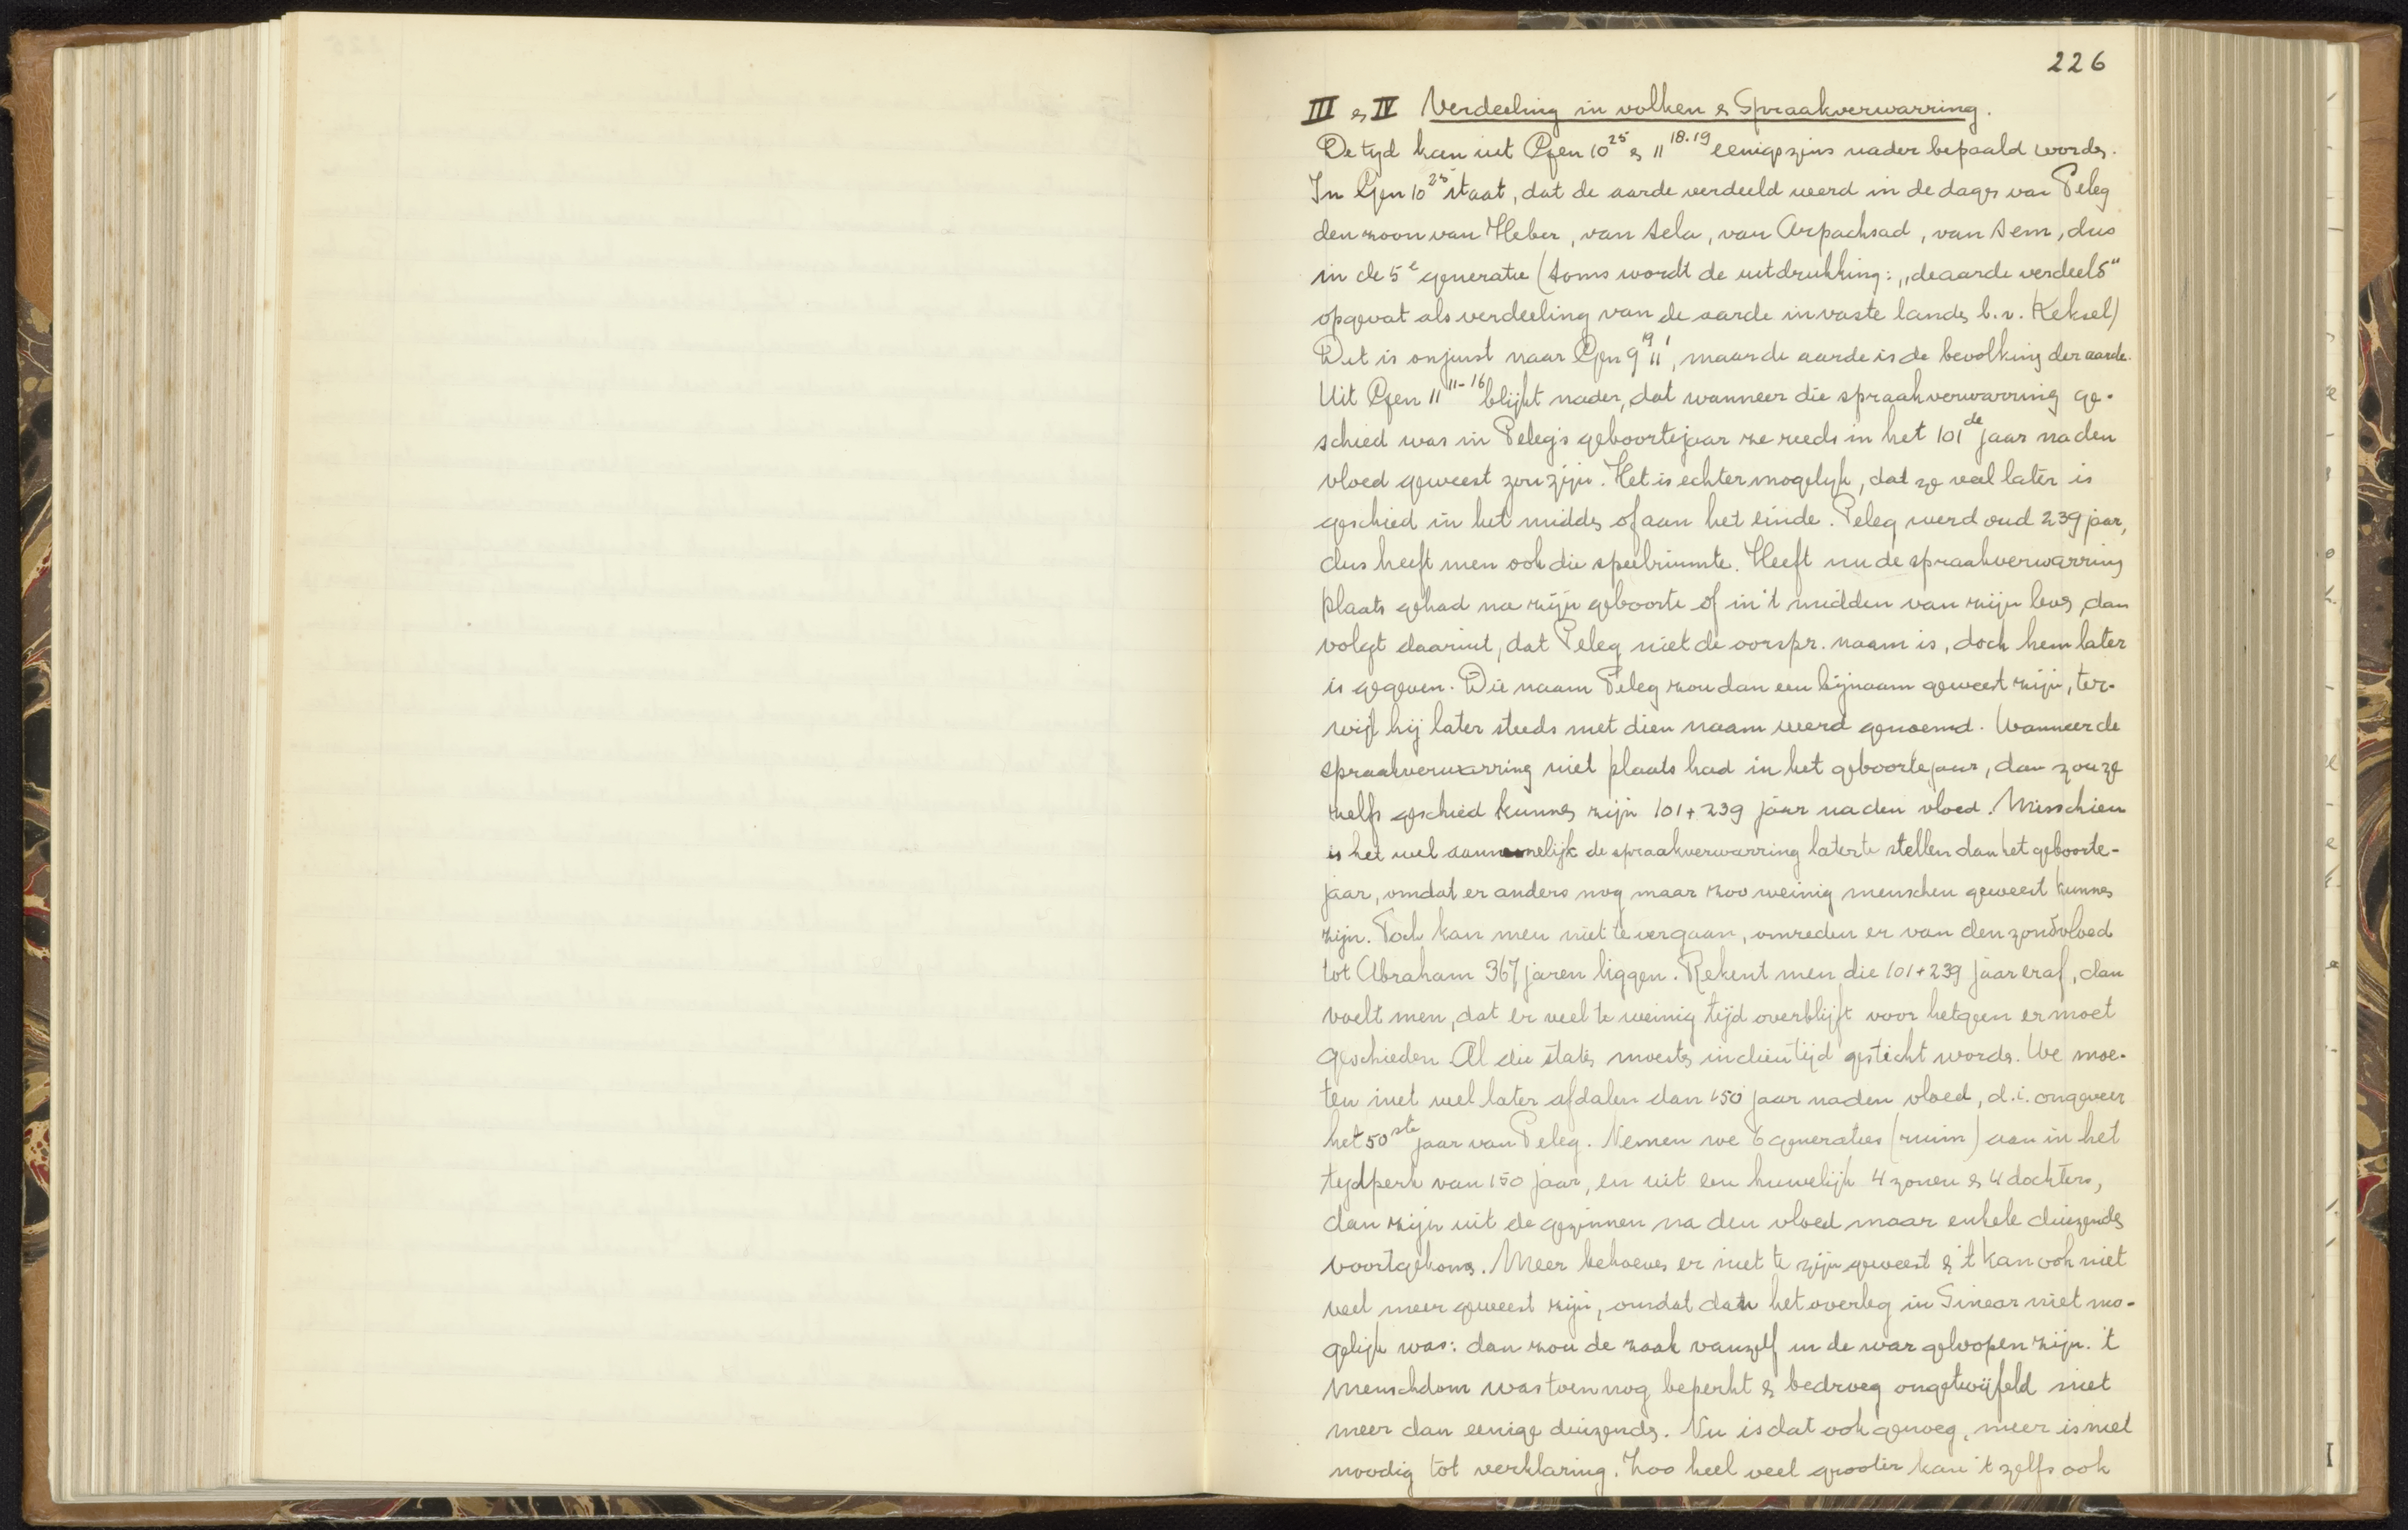 226
III & IV Verdeeling in volken & Spraakverwarring.
De tyd kan uit Gen 10²⁵ & 11¹⁸·¹⁹ eenigszins nader bepaald worden.
In Gen 10²⁵ staat, dat de aarde verdeeld werd in de dagen van Peleg
den zoon van Heber, van Sela, van Arpachsad, van Sem, dus
in de 5ᵉ generatie (soms wordt de uitdrukking: „de aarde verdeeld"
opgevat als verdeeling van de aarde in vaste landen b.v. Keksel)
Dit is onjuist naar Gen 9¹⁹ 11¹, maar de aarde is de bevolking der aarde.
Uit Gen 11¹¹⁻¹⁶ blijkt nader, dat wanneer die spraakverwarring ge-
schied was in Peleg's geboortejaar ze reeds in het 101de jaar na den
vloed geweest zou zijn. Het is echter mogelyk, dat ze veel later is
geschied in het midden of aan het einde. Peleg werd oud 239 jaar,
dus heeft men ook die speelruimte. Heeft nu de spraakverwarring
plaats gehad na zijn geboorte of in 't midden van zijn leven, dan
volgt daaruit, dat Peleg niet de oorspr. naam is, doch hem later
is gegeven. Die naam Peleg zou dan een bijnaam geweest zijn, ter-
wijl hij later steeds met dien naam werd genoemd. Wanneer de
spraakverwarring niet plaats had in het geboortejaar, dan zou ze
zelfs geschied kunnen zijn 101 + 239 jaar na den vloed. Misschien
is het wel aannemelijk de spraakverwarring later te stellen dan het geboorte-
jaar, omdat er anders nog maar zoo weinig menschen geweest kunnen
zijn. Toch kan men niet te ver gaan, omreden er van den zondvloed
tot Abraham 367 jaren liggen. Rekent men die 101 + 239 jaar eraf, dan
voelt men, dat er veel te weinig tijd overblijft voor hetgeen er moet
geschieden. Al die staten moesten in dien tijd gesticht worden. We moe-
ten niet veel later afdalen dan 150 jaar na den vloed, d.i. ongeveer
het 50ste jaar van Peleg. Nemen we 6 generaties (ruim) aan in het
tydperk van 150 jaar, en uit een huwelijk 4 zonen & 4 dochters,
dan zijn uit de gezinnen na den vloed maar enkele duizenden
voortgekomen. Meer behoeven er niet te zijn geweest & 't kan ook niet
veel meer geweest zijn, omdat dan het overleg in Sinear niet mo-
gelijk was: dan zou de zaak vanzelf in de war geloopen zijn. 't
Menschdom was toen nog beperkt & bedroeg ongetwijfeld niet
meer dan eenige duizenden. Nu is dat ook genoeg, meer is niet
noodig tot verklaring. Zoo heel veel grooter kan 't zelfs ook